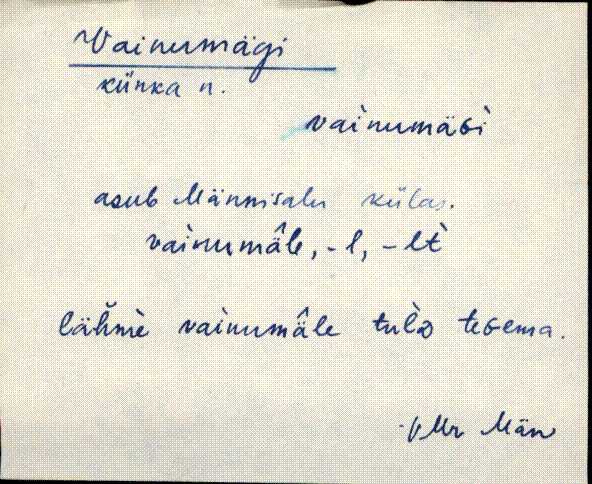 Vainumägi
künka n.
vaìnumäɢì
asub Männisalu külas.
vaìnumâle, -l, -lt̀
lähmè vaìnumâle tulɜ teɢema.
VMr Män